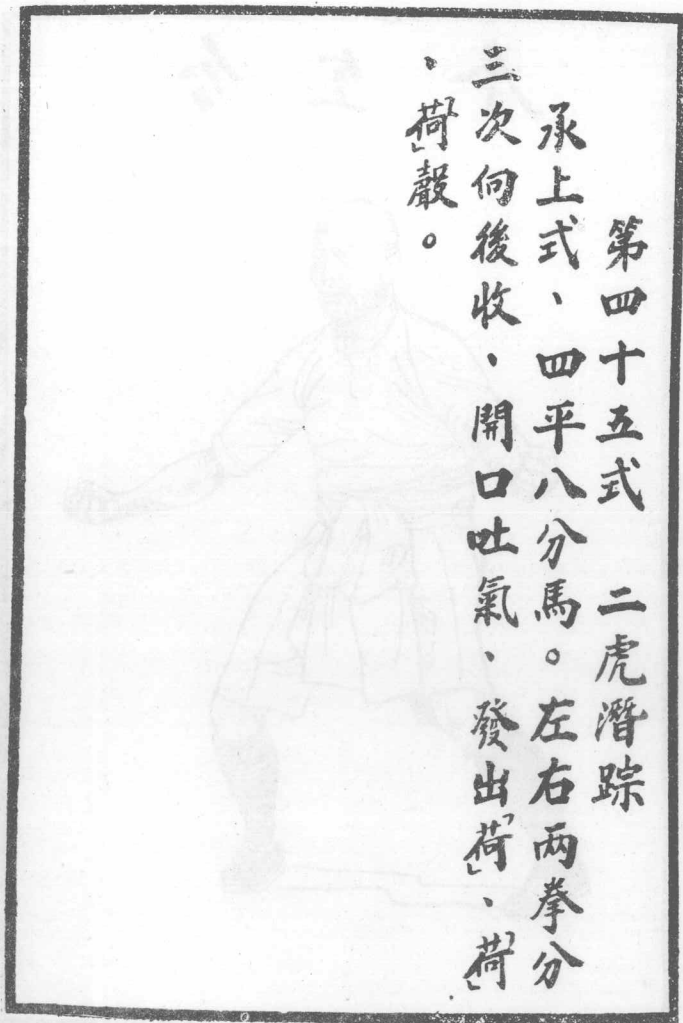 第四十五式　二虎潛踪
承上式、四平八分馬。左右兩拳分
三次向後收、開口吐氣、發出「荷」、「荷」
、「荷」聲。